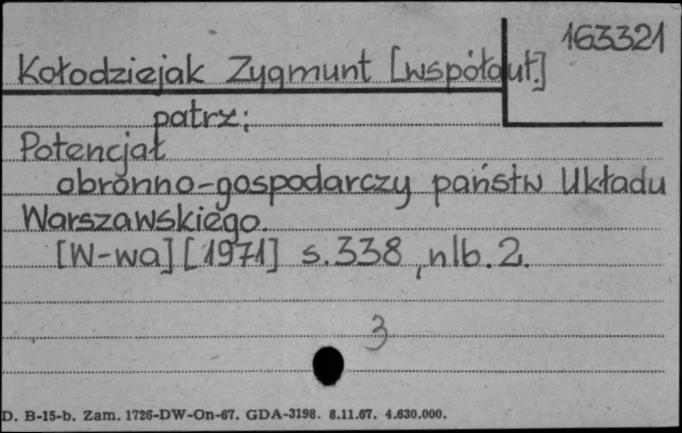 163321
Kołodziejak Zygmunt [współaut.]
patrz:
Potencjał
obronno-gospodarczy państw Układu
Warszawskiego.
[W-wa] [1971] s. 338, nlb. 2.
3
D. B-15-b. Zam. 1726-DW-On-67. GDA-3198. 8.11.67. 4.630.000.